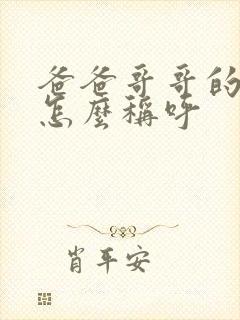 爸爸哥哥的
怎麼稱呼
肖平安